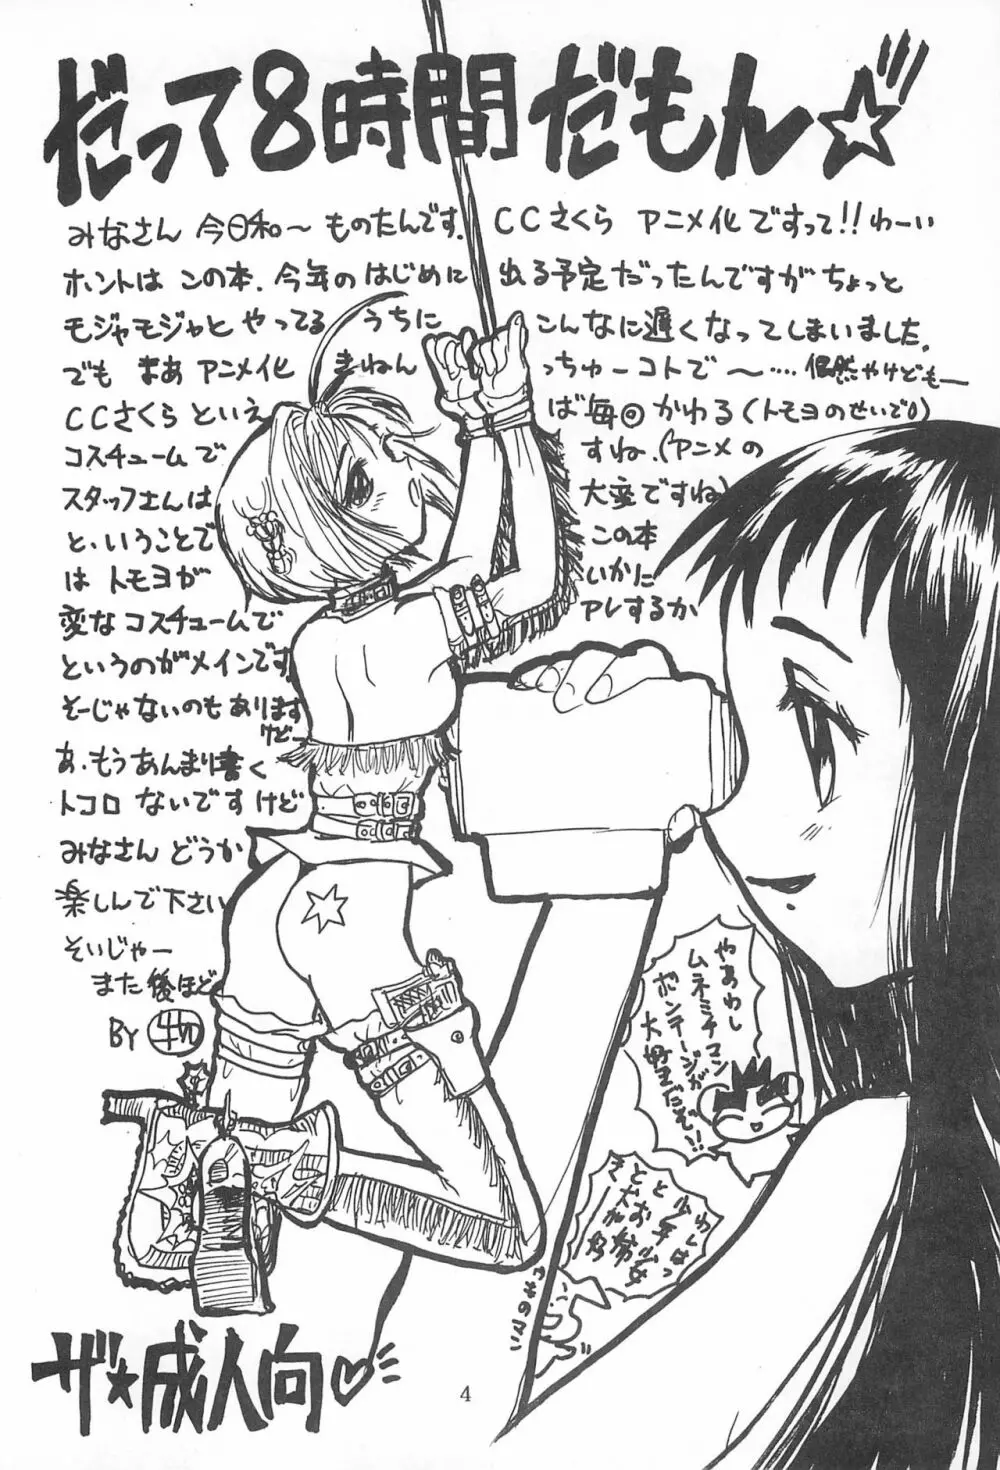 だって8時間だもん☆
みなさん 今日和〜 ものたんです. CCさくら アニメ化ですって!!わーい
ホントは この本、今年のはじめに 出る予定だったんですがちょっと
モジャモジャと やってる うちに こんなに遅くなってしまいました。
でも まあ アニメ化 きねん っちゅーコトで 〜…. 偶然やけども—
CCさくら といえ ば毎回 かわる(トモヨのせいで)
コスチュームで すね.(アニメの
スタッフさんは 大変ですね)
と、いうことで この本
は トモヨが いかに
変な コスチュームで アレするか
というのがメインです
そーじゃないのも あります
けどー
あ・もう あんまり書く
トコロ ないですけど
みなさん どうか
楽しんで下さい
そいじゃー
また 後ほど
BY 牛
やあわし
ムネミチコン
ボンテージが
大好きだぞ!!
わしはっ
少年少女
とお姉
と犬が
きっ好
ザ★成人向♡
4